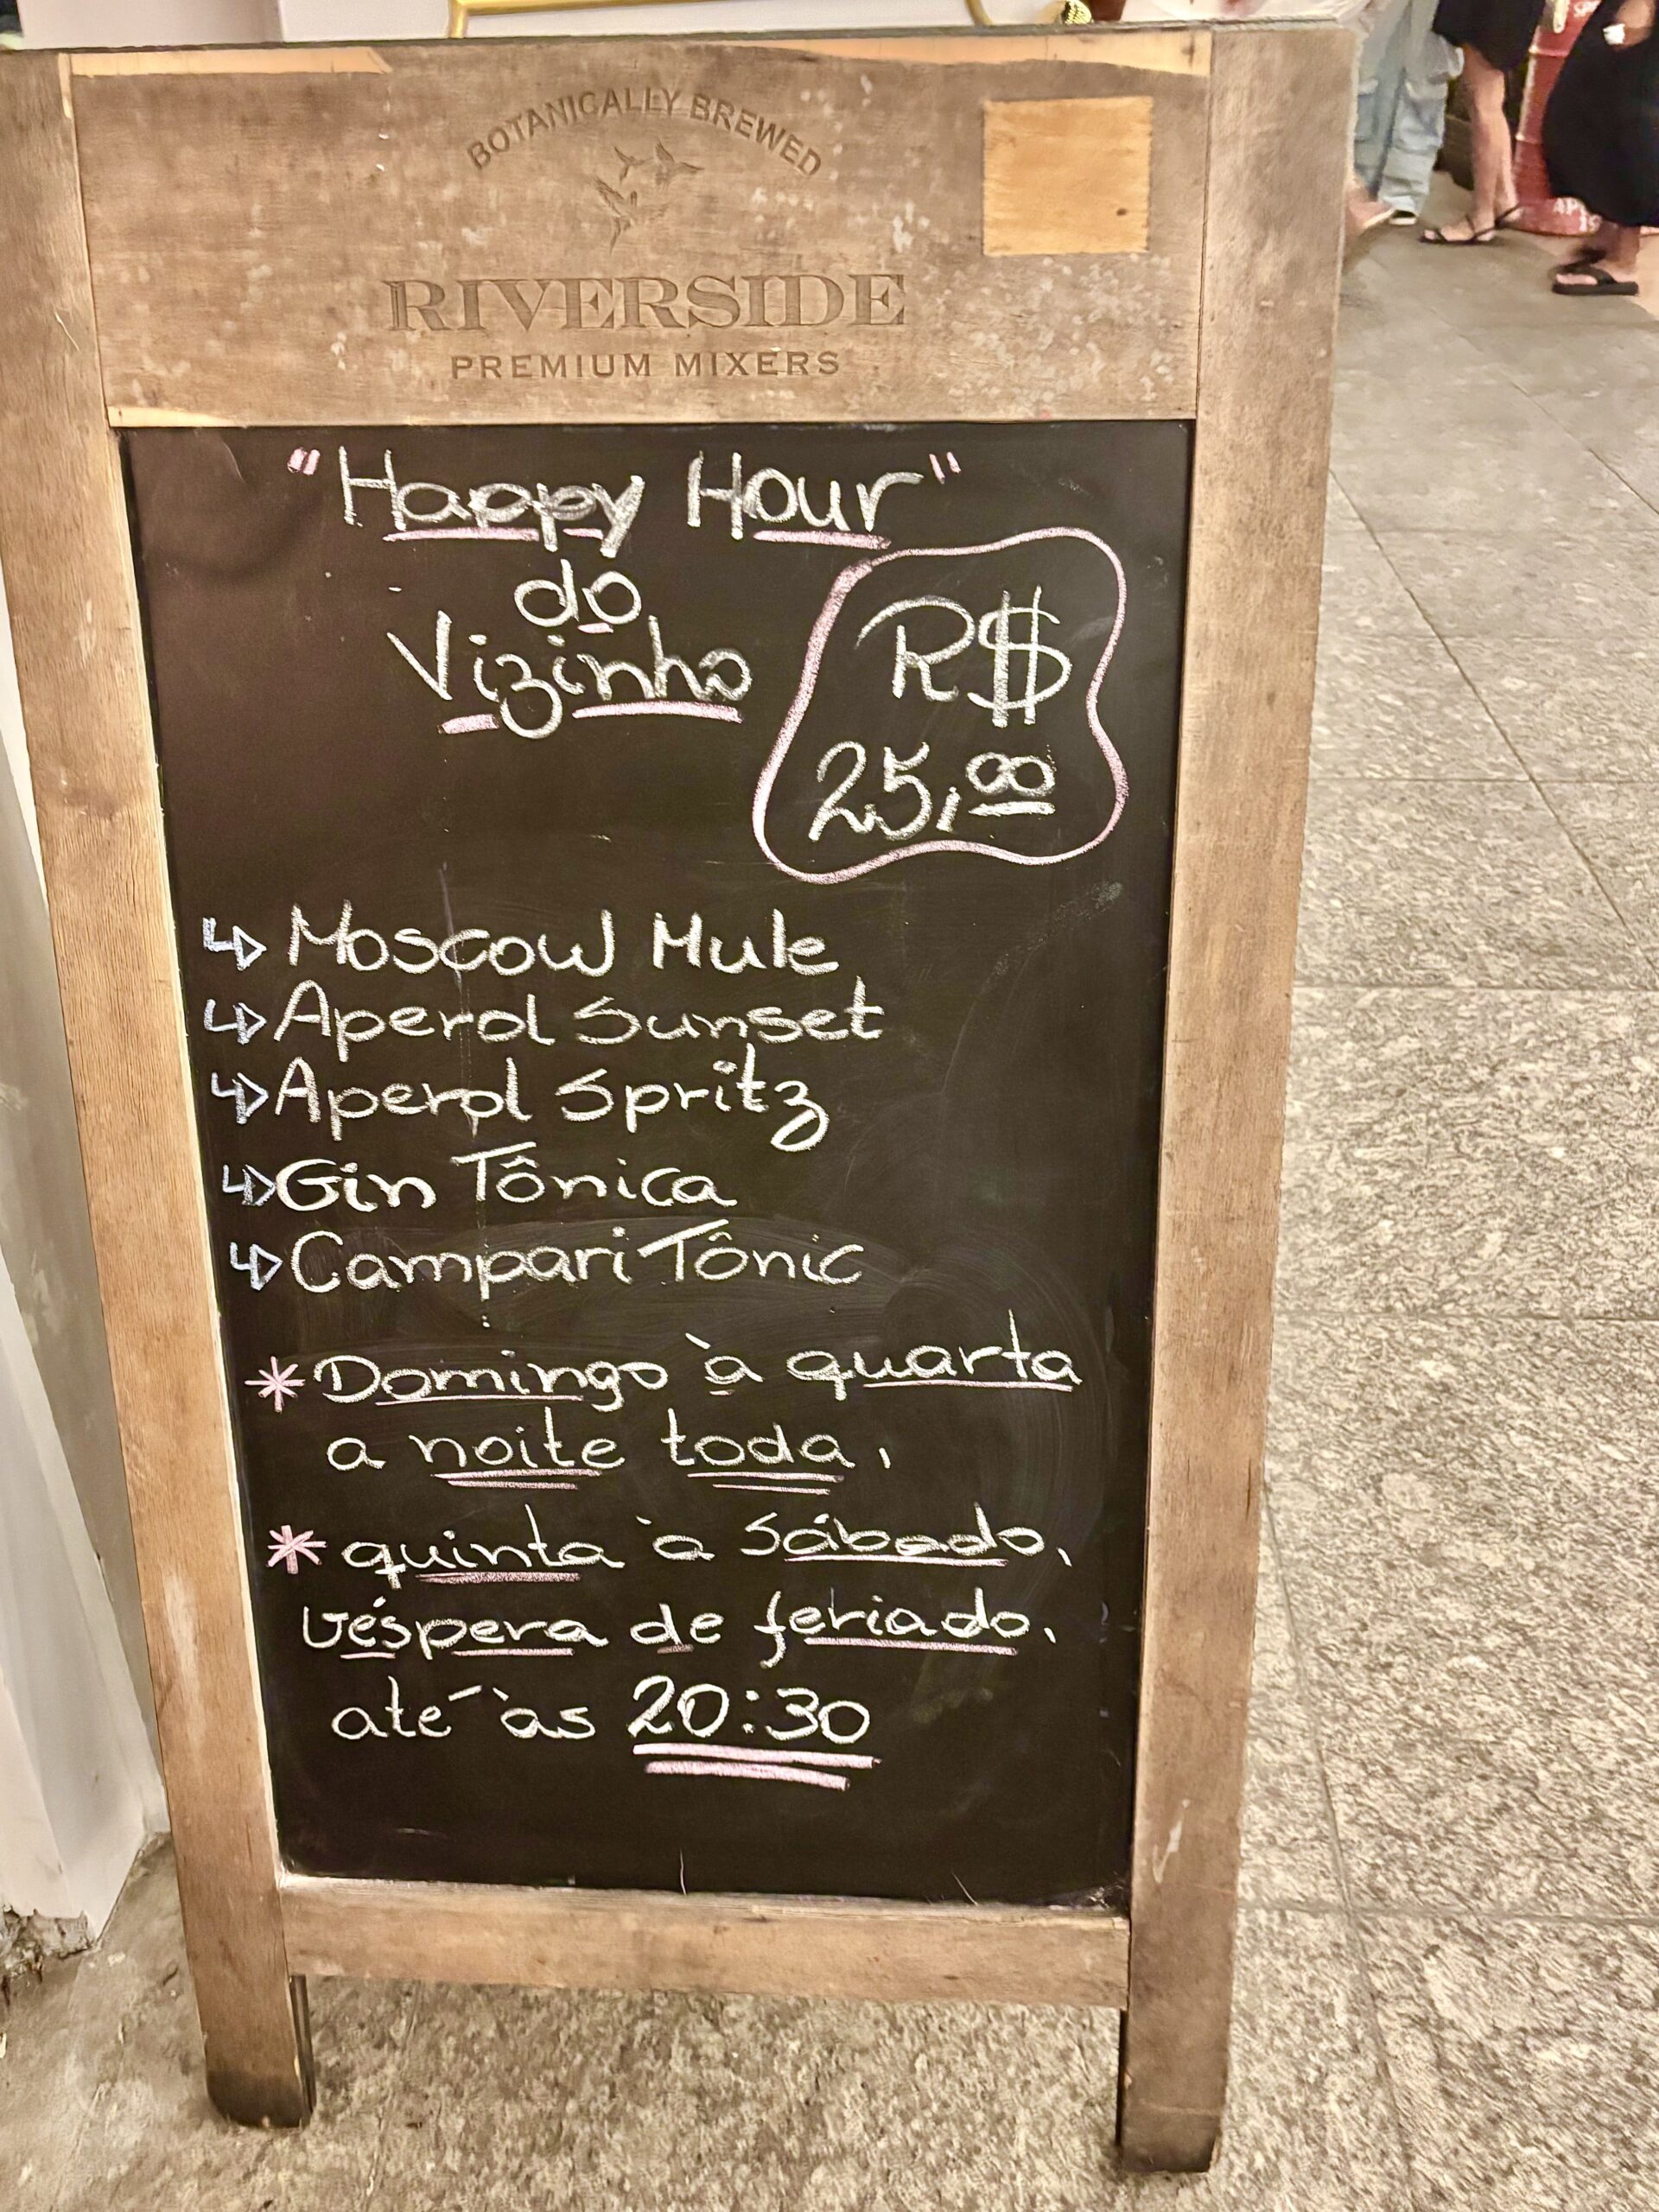 BOTANICALLY BREWED
RIVERSIDE
PREMIUM MIXERS
"Happy Hour"
do
Vizinho
R$
25,00
Moscow Mule
Aperol Sunset
Aperol Spritz
Gin Tônica
Campari Tônic
* Domingo à quarta
a noite toda,
* quinta à Sábado,
Véspera de feriado,
até às 20:30